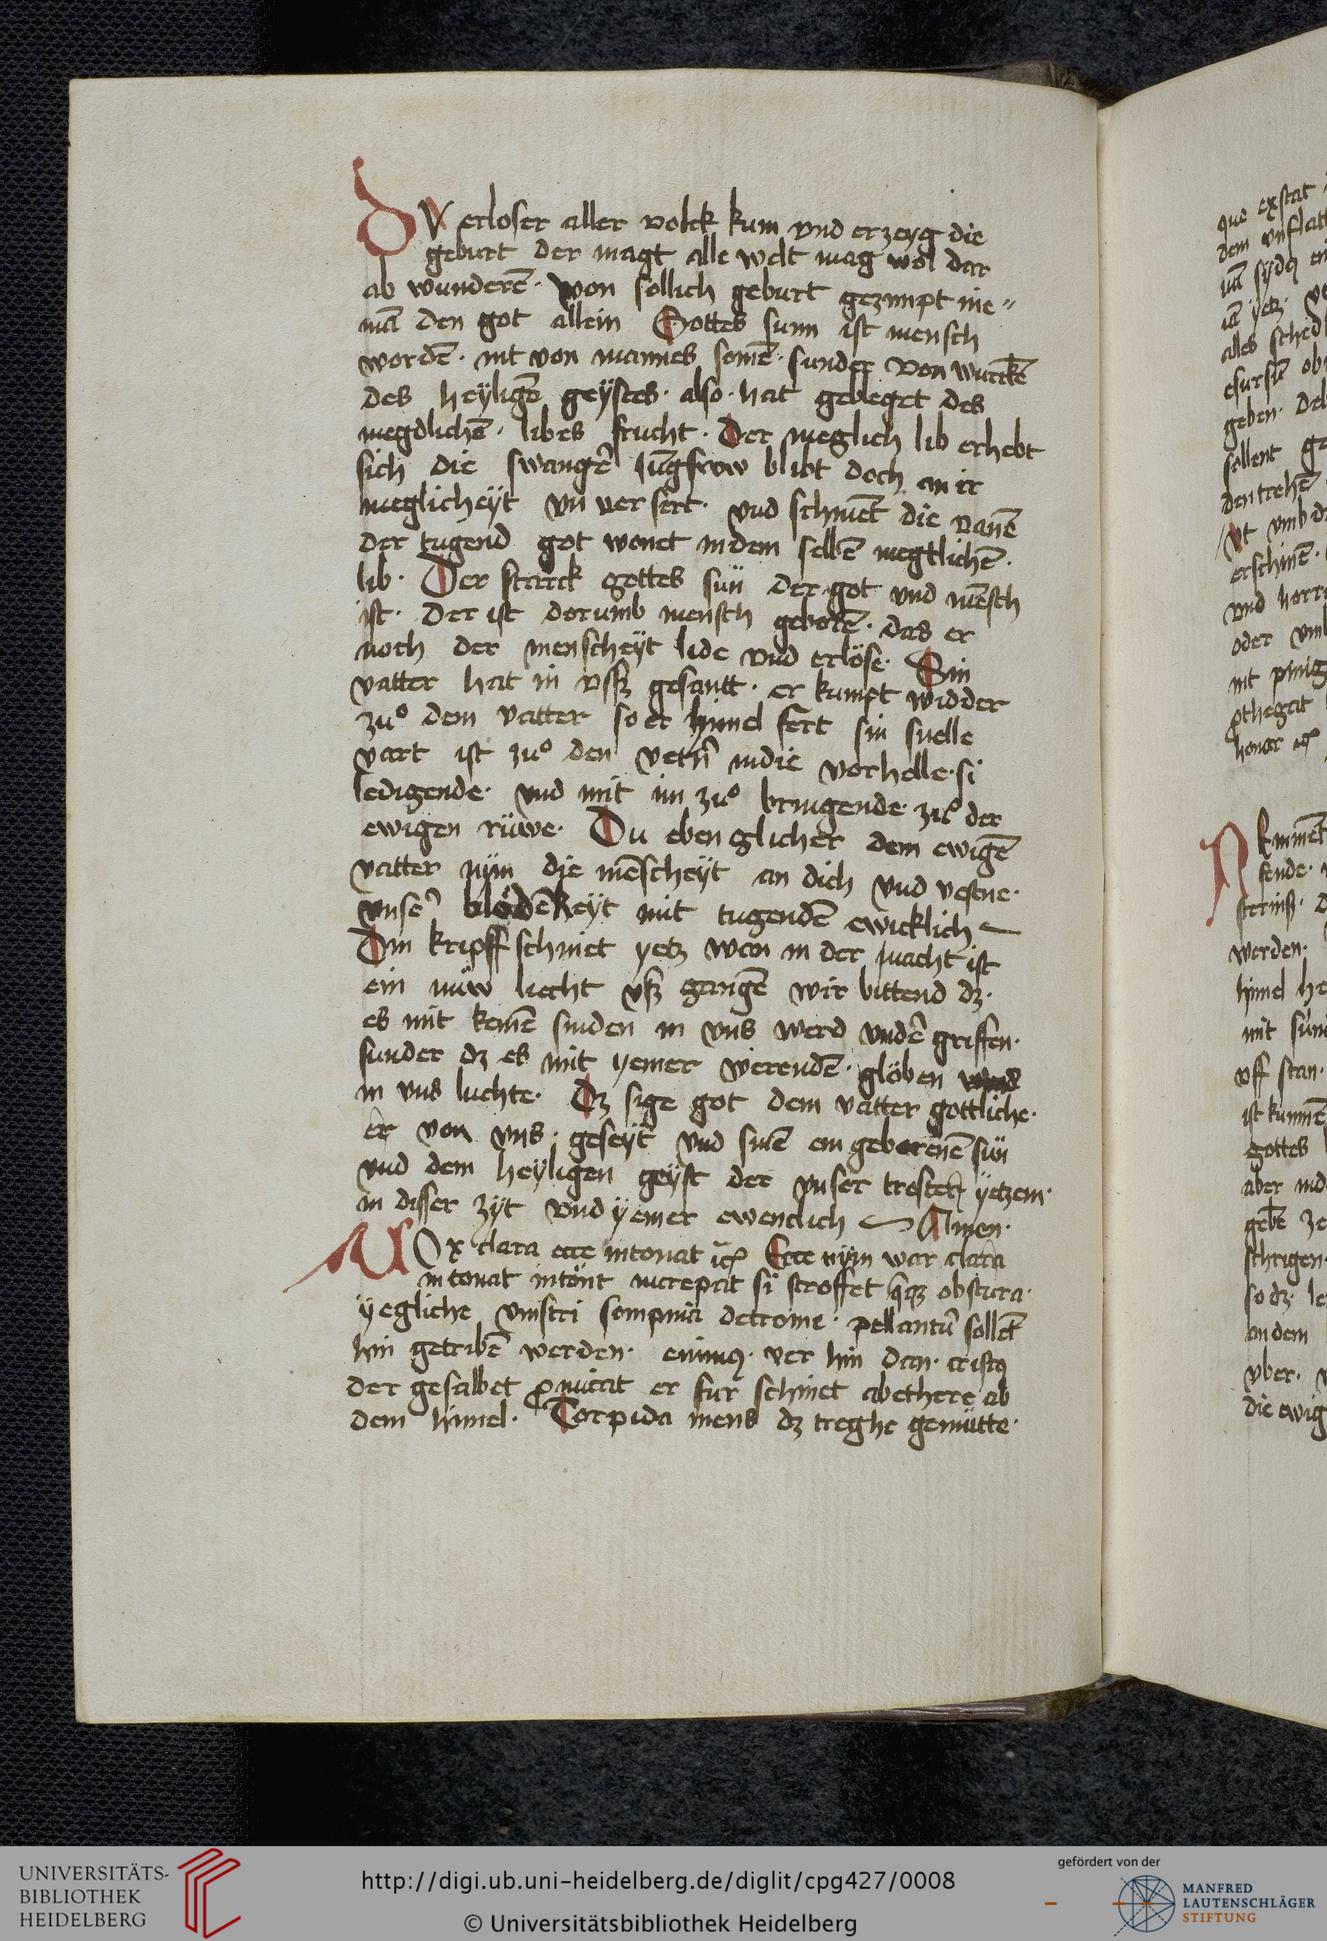 DV erloser aller volck kum vnd erzeyg die
geburt der magt alle welt mag wol dar
ab wunderē · von sollich geburt gezimpt nie〃
mā den got allein Gottes sunn ist mensch
wordē · nit von mannes somē · sunder von wurckē
des heyligē geystes · also · hat gebleget des
megdlichē · libes frucht · Der meglich lib erhebt
sich die swangē jūgfrow blibt doch an ir
meglicheÿt vn versert · vnd schinet die vanē
der tugend got wonet in dem selbē megtlichē ·
lib · Der starck gottes sün der got vnd mēsch
ist · Der ist dorumb mensch geborē · das er
noch der menscheÿt lide vnd erlöse · Sin
vatter hat in vsz gesantt · er kumpt widder
zuͦ dem vatter so er himel fert sin snelle
vart ist zuͦ den vetrn̄ in die vorhelle · si
ledigende · vnd mit im zuͦ bringende · zuͦ der
ewigen rüwe · Du eben glicher dem ewigē
vatter nÿm die mēscheÿt an dich vnd vestne ·
vnser blödēkeyt mit tugendē ewicklich
Din kripff schinet yetz won in der nacht ist
ein nüw liecht vsz gangē wir bittend dz ·
es mit keinē sinden in vns werd vndē griffen ·
sunder dz es mit yemer werendē · glöben
in vns luchte · Dz sige got dem vatter gottliche ·
er von vns · geseÿt vnd sinē ein gebornē sün
vnd dem heyligen geyst der vnser troster ÿetzem ·
in disser zÿt vnd ÿemer ewenclich Amen ·
VOx clara ecce intonat Ecce nÿm war clara
intonat intönt increpat si stroffet obscura ·
ÿegliche vinstri sompnia detrome · pellantur sollēt
hin getribē werden · eminus · ver hin dan · cristus
der gesalbet promicat er fur schinet abethere ab
dem himel · Torpida mens dz treghe gemütte ·
que extat
dem
alles
geben ·
sollent
den trehē
vt vmb
erschinē ·
vnd
oder
nit pinig
honor
sende ·
werden ·
himel
mit
vff stan ·
gottes
aber
so dz
an dem
vber ·
die ewig
UNIVERSITÄTS-
BIBLIOTHEK
HEIDELBERG
http://digi.ub.uni-heidelberg.de/diglit/cpg427/0008
© Universitätsbibliothek Heidelberg
gefördert von der
MANFRED
LAUTENSCHLÄGER
STIFTUNG